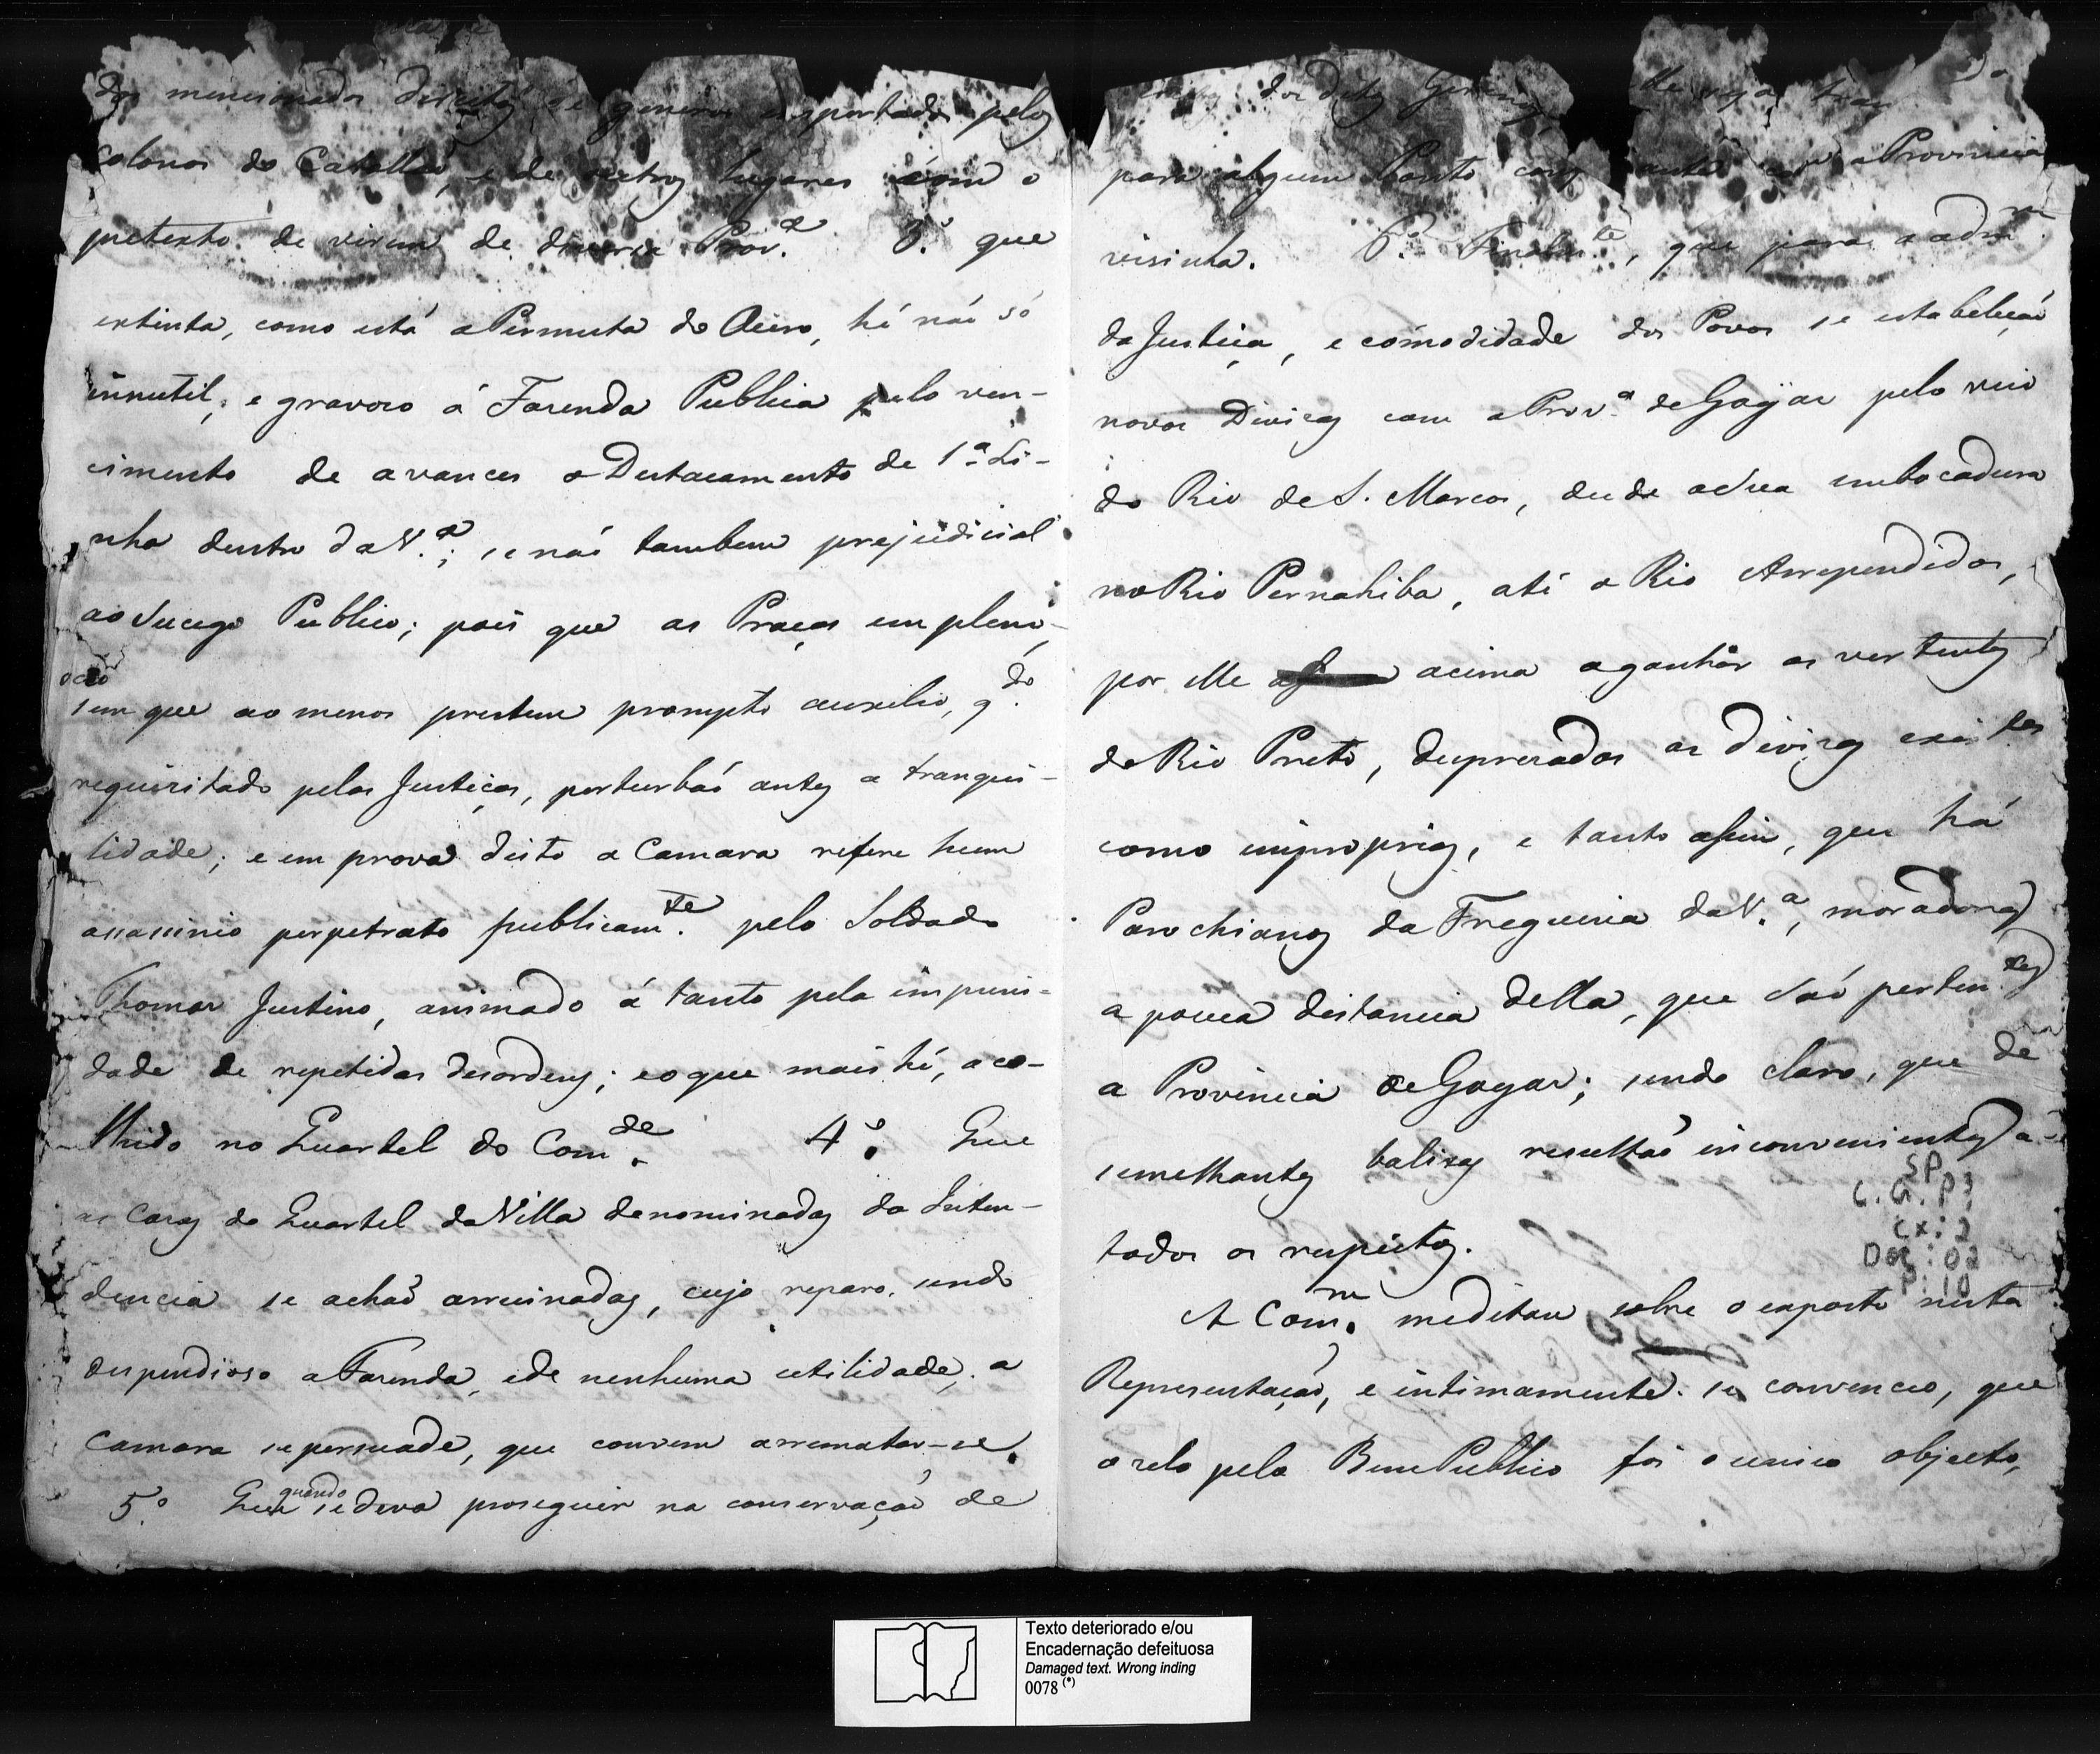 dos mencionados direitos de generos exportados pelos
Colonos do Catallaõ, e de outros lugares com o
pretexto de virem de diversa Prov.ª 3.º que
extinta, como está a Permuta do Oiro, hé naõ só
innutil, e gravoso á Fazenda Publica pelo ven-
cimento de avances o Destacamento de 1.ª Li-
nha dentro da V.ª; se naõ tambem prejudicial
ao Sucego Publico; pois que as Praças em pleno
ocio
sem que ao menos prestem prompto auxilio, q.do
requizitado pelas Justiças, perturbaõ antes a tranqui-
lidade; e em prova disto a Camara refere hum
assassinio perpetrato publicam.te pelo Soldado
Thomas Justino, animado á tanto pela impuni-
dade de repetidas desordens; e o que mais hé, aco-
lhido no Quartel do Com.de 4.º Que
as Casas do Quartel da Villa denominadas da Inten-
dencia se achaõ arruinadas, cujo reparo sendo
despendioso a Fazenda, e de nenhuma utilidade, a
Camara se persuade, que convem arrematar-se.
quando
5.º Que se deva proseguir na conservaçaõ de
dos ditos
para algum Ponto a Provincia
visinha. 6.º Finalm.te, que para a adm.m
da Justiça, e cómodidade dos Povos se estabeleçaõ
novas Divisas com a Prov.ª de Goyaz pelo veio
do Rio de S. Marcos, desde a Sua embocadura
no Rio Pernahiba, até o Rio Arrependidos,
por elle acima a ganhar as vertentes
do Rio Preto, desprezadas as divisas exis.tes
como improprias, e tanto assim, que há
Parochianos da Freguezia da V.ª, moradores
a pouca distancia della, que Saõ perten.tes
a Provincia de Goyaz; sendo claro, que de
semelhantes balisas resultaõ inconvenientes a
todos os respeitos.
SP
C.G. P3
CX: 2
DOC: 02
P: 10
A Com.m meditou sobre o exposto nesta
Representaçaõ, e intimamente se convenceo, que
o zelo pelo Bem Publico foi o unico objecto,
Texto deteriorado e/ou
Encadernação defeituosa
Damaged text. Wrong inding
0078 (*)